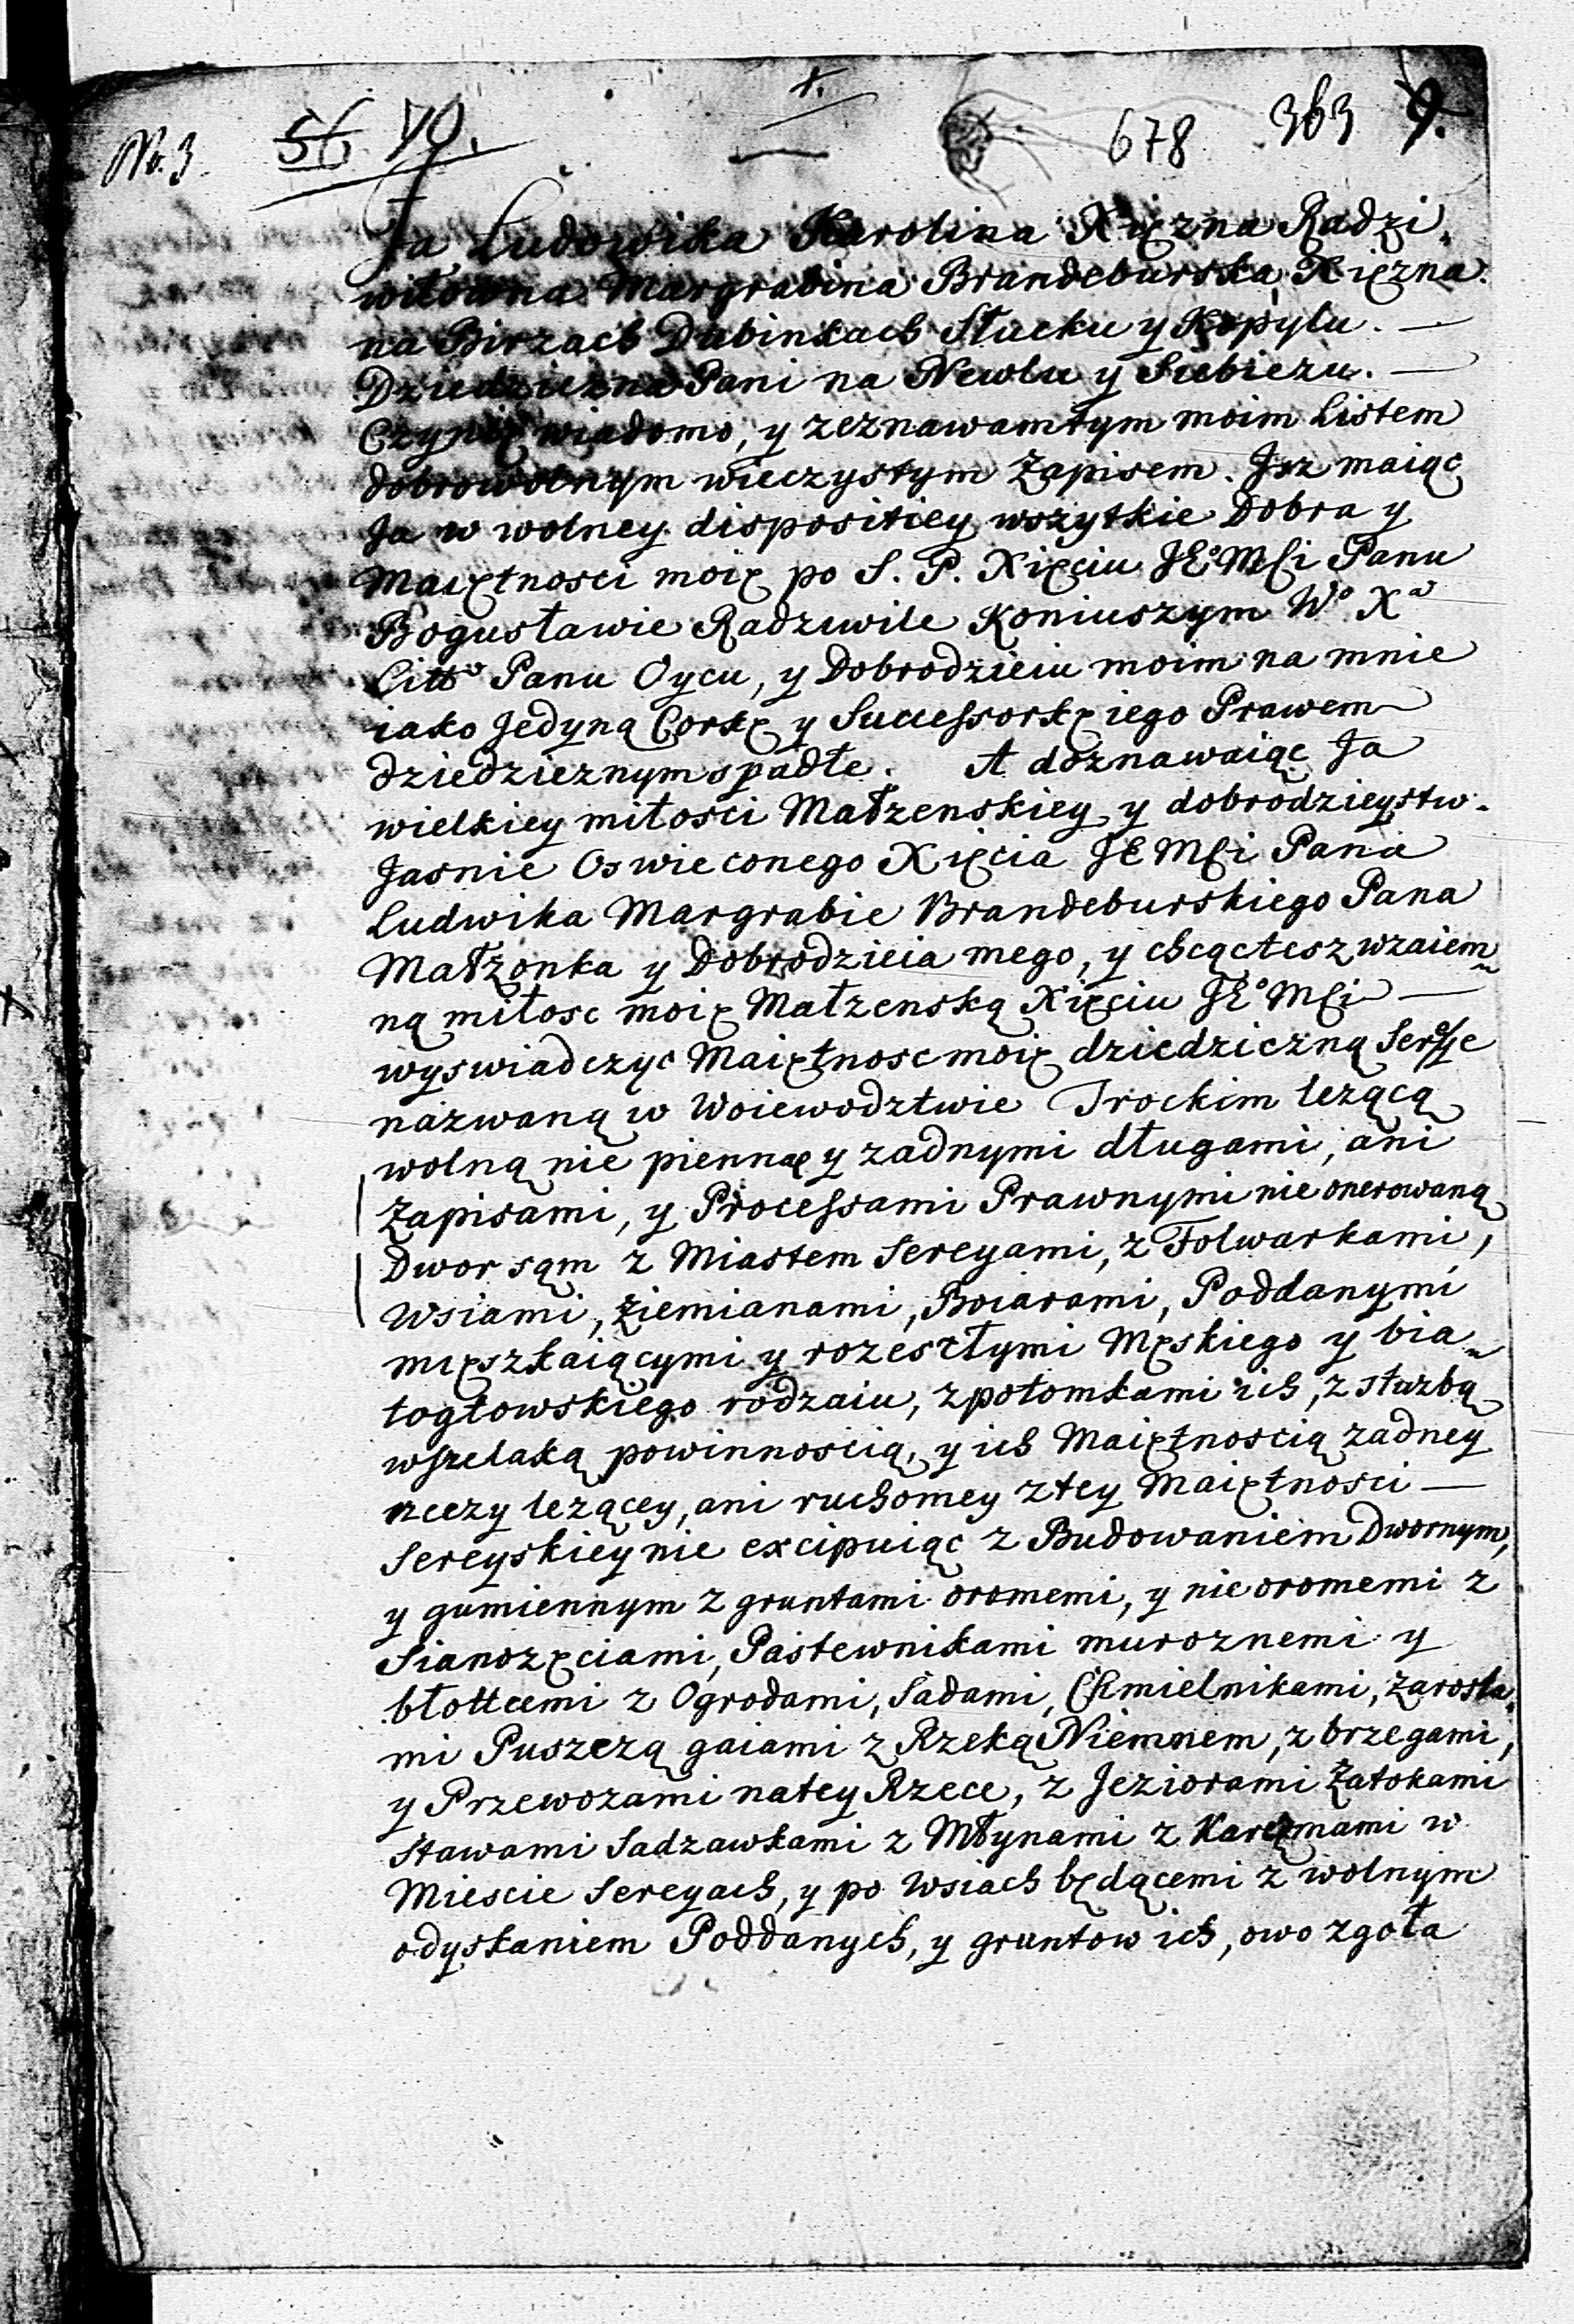 No. 3. 56 70. 1. 678 363 9.
Ja Ludowika Karolina Xięzna Radzi
wiłowna Margrabina Brandeburska, Xięzna
na Birzach Dubinkach Słucku y Kopylu. —
Dziedziczna Pani na Newlu y Siebiezu. —
Czynię wiadomo, y zeznawam tym moim Listem
dobrowolnym wieczystym Zapisem. Jsz maiąc
Ja w wolney dispositiey wszytkie Dobra y
Maiętnosci moię po S. P. Xięciu JEº Mści Panu
Bogusławie Radziwile Koniuszym Wº Xª
Littº Panu Oycu, y Dobrodzieiu moim na mnie
iako Jedyną Corkę y Successorkę iego Prawem
dziedzicznym spadłe. A doznawaiąc Ja
wielkiey miłosci Małzenskiey y dobrodzieystw.
Jasnie Oswieconego Xięcia JE Mści Pana
Ludwika Margrabie Brandeburskiego Pana
Małząnka y Dobrodzieia mego, y chcąc tesz wzaiem
ną miłosc moię Małzenską Xięciu JEº Mści —
wyswiadczyc Maiętnosc moię dziedziczną
nazwaną w Woiewodztwie Trockim lezącą
wolną nie pienną y zadnymi długami, ani
Zapisami, y Processami Prawnymi nie onerowaną
Dwor sąm z Miastem Sereyami, z Folwarkami,
Wsiami, Ziemianami, Boiarami, Poddanymi
męszkaiącymi y rozeszłymi Męskiego y bia
łogłowskiego rodzaiu, z potomkami ich, z słuzbą
wszelaką powinnoscią, y ich Maiętnoscią zadney
rzeczy lezącey, ani ruchomey z tey Maiętnosci —
Sereyskiey nie excipuiąc z Budowaniem Dwornym,
y gumiennym z gruntami oromemi, y nie oromemi z
Sianozęciami, Pastewnikami muroznemi y
błottcemi z Ogrodami, Sadami, Chmielnikami, Zarosla
mi Puszczą gaiami z Rzeką Niemnem, z brzegami,
y Przewozami na tey Rzece, z Jeziorami Zatokami
stawami Sadzawkami z Młynami z Karczmami w
Miescie Sereyach, y po Wsiach będącemi z wolnym
odyskaniem Poddanych, y gruntow ich, owo zgoła